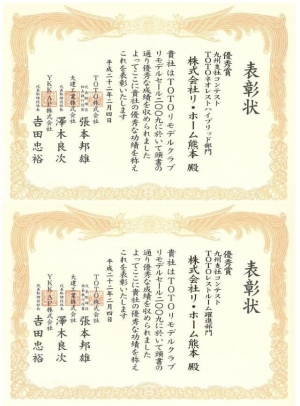 表彰状
優秀賞
九州支社コンテスト
TOTOネオレストハイブリッド部門
株式会社リ・ホーム熊本 殿
貴社はTOTOリモデルクラブ
リモデルセール二〇〇九に於いて頭書の
通り優秀な成績を収められました
よってここに貴社の優秀な功績を称え
これを表彰いたします
平成二十二年二月四日
TOTO株式会社
張本邦雄
大建工業株式会社
澤木良次
YKK AP株式会社
吉田忠裕
表彰状
優秀賞
九州支社コンテスト
TOTOレストルーム躍進部門
株式会社リ・ホーム熊本 殿
貴社はTOTOリモデルクラブ
リモデルセール二〇〇九に於いて頭書の
通り優秀な成績を収められました
よってここに貴社の優秀な功績を称え
これを表彰いたします
平成二十二年二月四日
TOTO株式会社
張本邦雄
大建工業株式会社
澤木良次
YKK AP株式会社
吉田忠裕